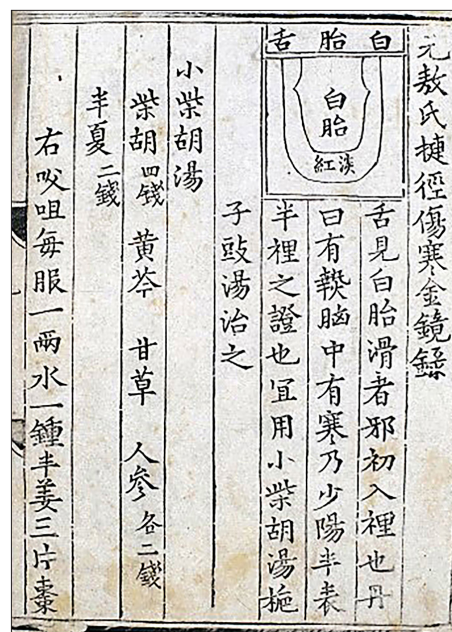 元敖氏捷徑傷寒金鏡錄
白胎舌
白胎
淡紅
舌見白胎滑者邪初入裡也丹
曰有熱腦中有寒乃少陽半表
半裡之證也宜用小柴胡湯梔
子豉湯治之
小柴胡湯
柴胡四錢 黄芩 甘草 人參各二錢
半夏二錢
右㕮咀每服一兩水一鍾半姜三片棗